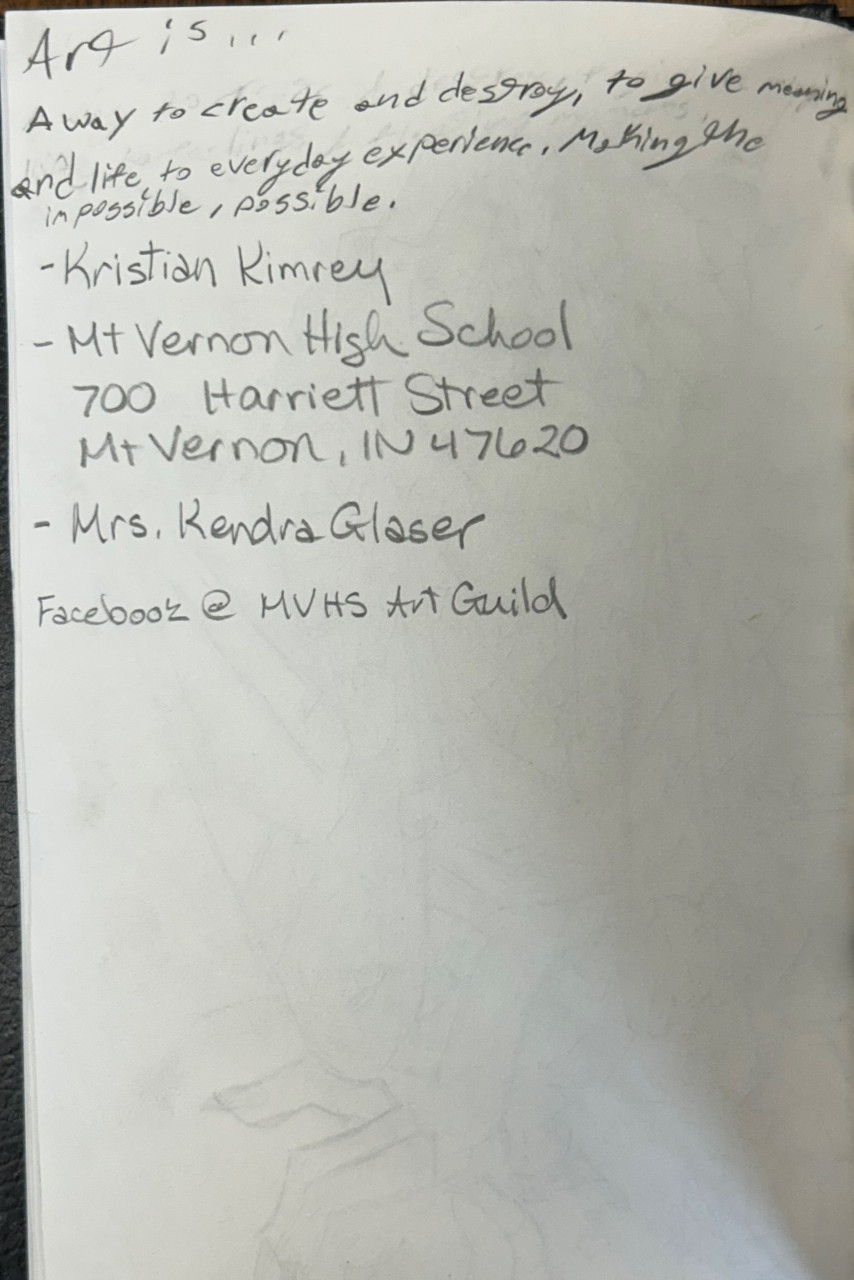 Art is...
A way to create and destroy, to give meaning
and life to everyday experience. Making the
impossible, possible.
- Kristian Kimrey
- Mt Vernon High School
700 Harriett Street
Mt Vernon, IN 47620
- Mrs. Kendra Glaser
Facebook @ MVHS Art Guild